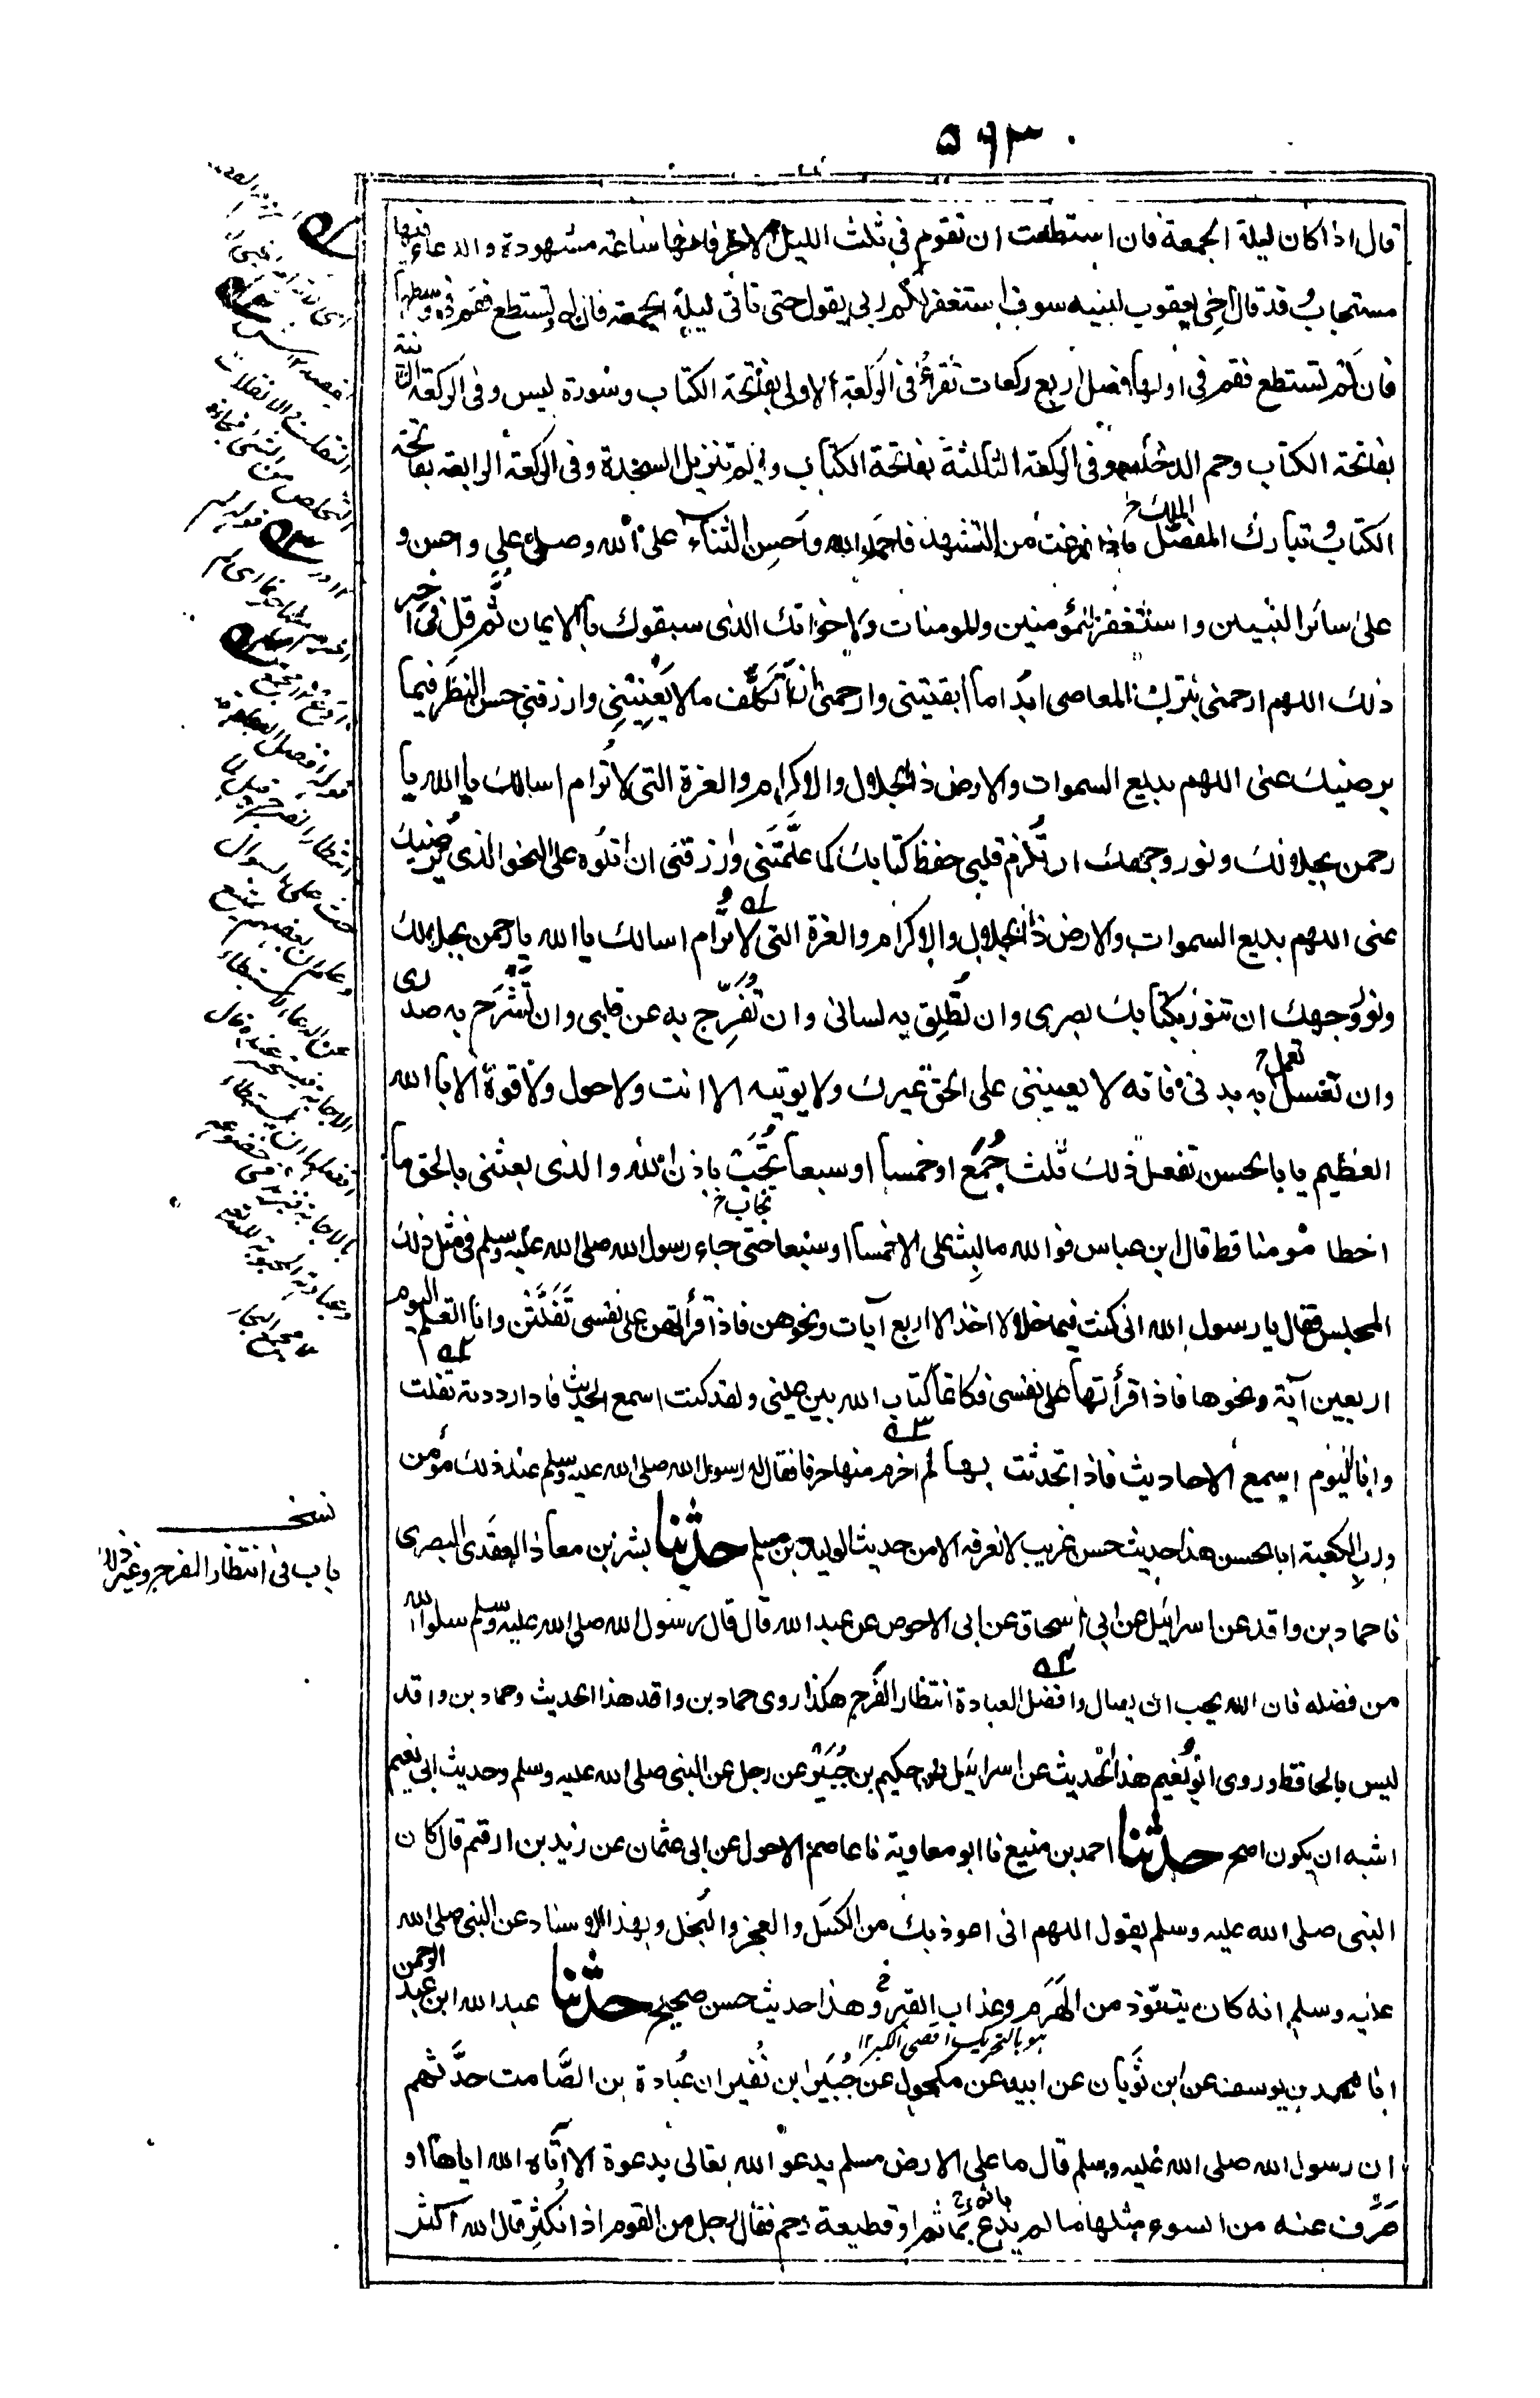 ۵۹۳
قال اذا كان ليلة الجمعة فان استطعت ان تقوم فى ثلث الليل الاخر فانها ساعة مشهودة والدعاء فيها
مستجاب وقد قال اخى يعقوب لبنيه سوف استغفر لكم ربى يقول حتى تاتى ليلة الجمعة فان لم تستطع فقم فى وسطها
فان لم تستطع فقم فى اولها فصل اربع ركعات تقرأ فى الركعة الاولى بفاتحة الكتاب وسورة يس وفى الركعة الثانية
بفاتحة الكتاب وحم الدخان وفى الركعة الثالثة بفاتحة الكتاب والم تنزيل السجدة وفى الركعة الرابعة بفاتحة
الكتاب وتبارك المفصل فاذا فرغت من التشهد فاحمد الله واحسن الثناء على الله وصل على واحسن و
الملك
على سائر النبيين واستغفر للمؤمنين وللمومنات ولاخوانك الذى سبقوك بالايمان ثم قل فى اخر
ذلك اللهم ارحمنى بترك المعاصى ابدا ما ابقيتنى وارحمنى ان اتكلف ما لا يعنينى وارزقنى حسن النظر فيما
يرضيك عنى اللهم بديع السموات والارض ذا الجلال والاكرام والعزة التى لا ترام اسالك يا الله يا
رحمن بجلالك ونور وجهك ان تلزم قلبى حفظ كتابك كما علمتنى وارزقنى ان اتلوه على النحو الذى يرضيك
عنى اللهم بديع السموات والارض ذا الجلال والاكرام والعزة التى لا ترام اسالك يا الله يا رحمن بجلالك
ونور وجهك ان تنور بكتابك بصرى وان تطلق به لسانى وان تفرج به عن قلبى وان تشرح به صدرى
وان تغسل به بدنى فانه لا يعيننى على الحق غيرك ولا يوتيه الا انت ولا حول ولا قوة الا بالله
تعمل
العظيم يابا الحسن تفعل ذلك ثلث جمع او خمسا او سبعا تجب باذن الله والذى بعثنى بالحق ما
تجاب
اخطا مومنا قط قال ابن عباس فوالله ما لبث على الا خمسا او سبعا حتى جاء رسول الله صلى الله عليه وسلم فى مثل ذلك
المجلس فقال يا رسول الله انى كنت فيما خلا لا اخذ الا اربع آيات ونحوهن فاذا قرأتهن على نفسى تفلتن وانا اتعلم اليوم
اربعين آية ونحوها فاذا قرأتها على نفسى فكانما كتاب الله بين عينى ولقد كنت اسمع الحديث فاذا رددته تفلت
وانا اليوم اسمع الاحاديث فاذا تحدثت بها لم اخرم منها حرفا فقال له رسول الله صلى الله عليه وسلم عند ذلك مؤمن
ورب الكعبة ابا الحسن هذا حديث حسن غريب لا نعرفه الا من حديث الوليد بن مسلم حدثنا بشر بن معاذ العقدى البصرى
نا حماد بن واقد عن اسرائيل عن ابى اسحاق عن ابى الاحوص عن عبد الله قال قال رسول الله صلى الله عليه وسلم سلوا الله
من فضله فان الله يحب ان يسال وافضل العبادة انتظار الفرج هكذا روى حماد بن واقد هذا الحديث وحماد بن واقد
ليس بالحافظ وروى ابو نعيم هذا الحديث عن اسرائيل عن حكيم بن جبير عن رجل عن النبى صلى الله عليه وسلم وحديث ابى نعيم
اشبه ان يكون اصح حدثنا احمد بن منيع نا ابو معاوية نا عاصم الاحول عن ابى عثمان عن زيد بن ارقم قال كان
النبى صلى الله عليه وسلم يقول اللهم انى اعوذ بك من الكسل والعجز والبخل وبهذا الاسناد عن النبى صلى الله
عليه وسلم انه كان يتعوذ من الهرم وعذاب القبر وهذا حديث حسن صحيح حدثنا عبد الله ابن عبد الرحمن
هو بالتحريك اقصى الكبر ١٢
انا محمد بن يوسف عن ابن ثوبان عن ابيه عن مكحول عن جبير ابن نفير ان عبادة بن الصامت حدثهم
ان رسول الله صلى الله عليه وسلم قال ما على الارض مسلم يدعو الله تعالى بدعوة الا آتاه الله اياها او
صرف عنه من السوء مثلها ما لم يدع بماثم او قطيعة رحم فقال رجل من القوم اذا نكثر قال الله اكثر
نسخه
باب فى انتظار الفرج وغير ذلك
التخلص من الشئ فجاءة
قوله افضل العبادة
انتظار الفرج
حث على السوال
من مجمع البحار